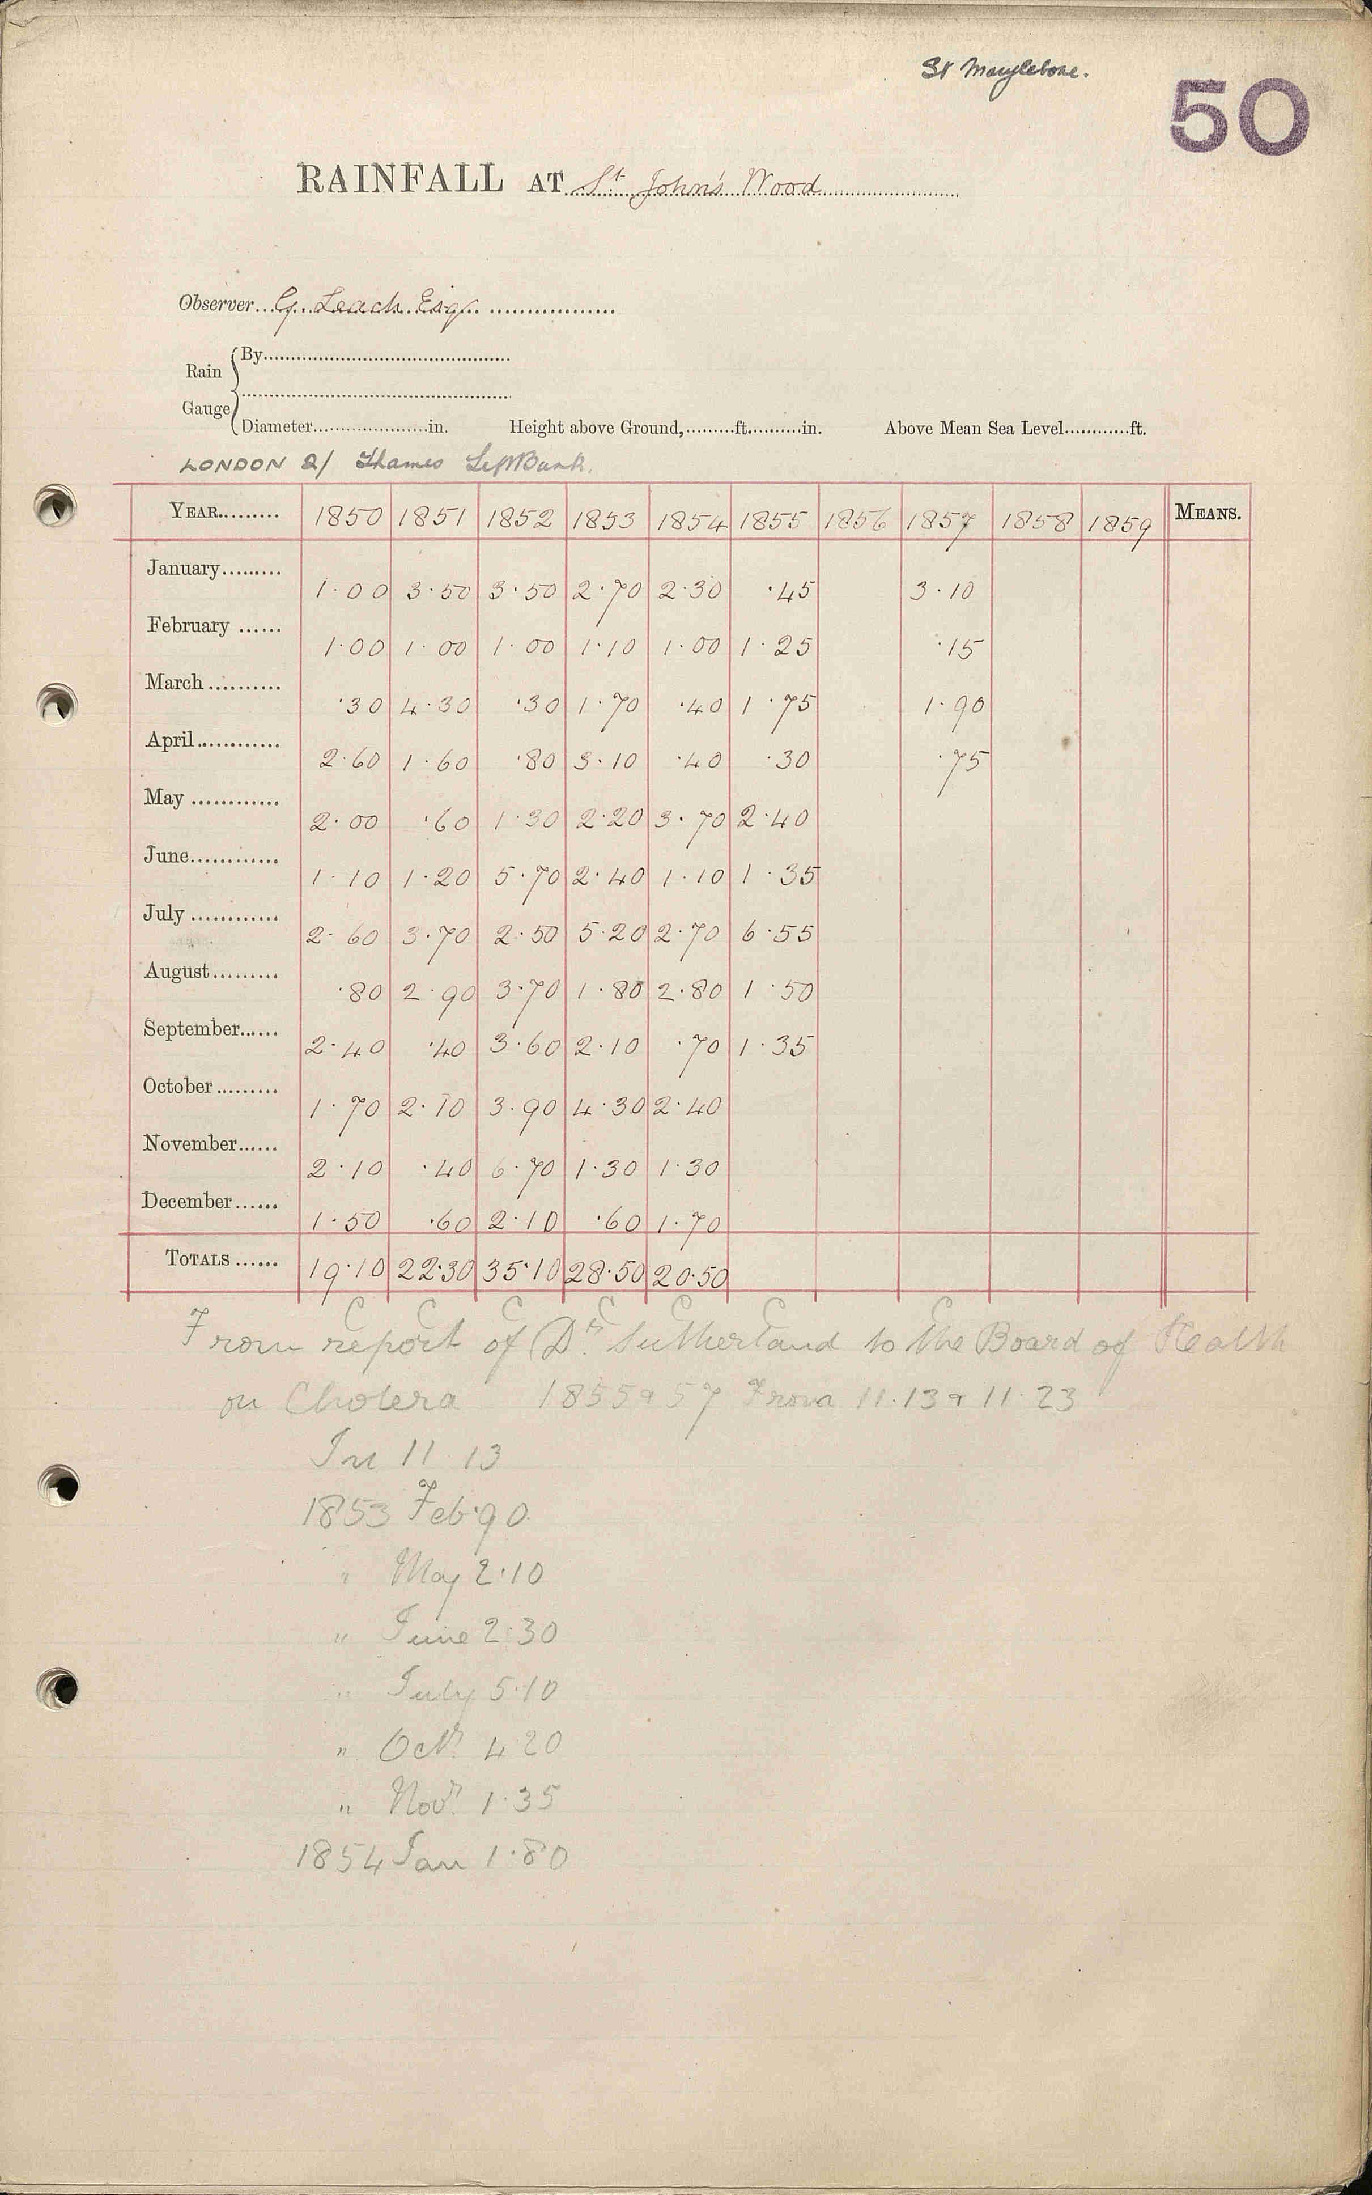 St Marylebone.
50
RAINFALL AT St John's Wood
Observer G. Leach Esq
Rain Gauge
By
Diameter in. Height above Ground, ft. in. Above Mean Sea Level ft.
LONDON 2/ Thames Left Bank.
YEAR 1850 1851 1852 1853 1854 1855 1856 1857 1858 1859 MEANS.
January 1.00 3.50 3.50 2.70 2.30 .45 3.10
February 1.00 1.00 1.00 1.10 1.00 1.25 .15
March .30 4.30 .30 1.70 .40 1.75 1.90
April 2.60 1.60 .80 3.10 .40 .30 .75
May 2.00 .60 1.30 2.20 3.70 2.40
June 1.10 1.20 5.70 2.40 1.10 1.35
July 2.60 3.70 2.50 5.20 2.70 6.55
August .80 2.90 3.70 1.80 2.80 1.50
September 2.40 .40 3.60 2.10 .70 1.35
October 1.70 2.10 3.90 4.30 2.40
November 2.10 .40 6.70 1.30 1.30
December 1.50 .60 2.10 .60 1.70
TOTALS 19.10 22.30 35.10 28.50 20.50
C C C C C C C
From report of Dr. Sutherland to the Board of Health
on Cholera 1855 & 57 From 11.13 & 11.23
In 11.13
1853 Feb .90
" May 2.10
" June 2.30
" July 5.10
" Octr 4.20
" Novr 1.35
1854 Jan 1.80